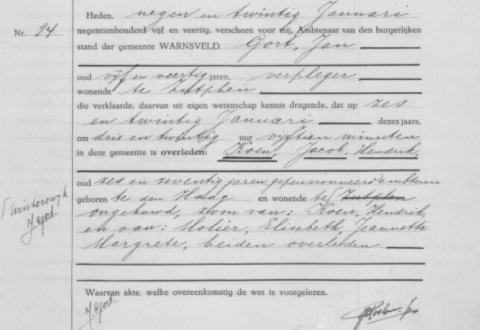 Heden, negen en twintig Januari
Nr. 24 negentienhonderd vijf en veertig, verscheen voor mij, Ambtenaar van den burgerlijken
stand der gemeente WARNSVELD. Gort, Jan
oud vijf en veertig jaren, verpleger
wonende te Zutphen
die verklaarde, daarvan uit eigen wetenschap kennis dragende, dat op zes
en twintig Januari dezes jaars,
om drie en twintig uur vijftien minuten
in deze gemeente is overleden: Koen, Jacob, Hendrik
oud zes en zeventig jaren, gepensionneerd ambtenaar
geboren te den Haag en wonende te Zutphen
Winterswijk
J Gort.
ongehuwd, zoon van: Koen, Hendrik,
en van: Molier, Elisabeth, Jeannette
Margrete, beiden overleden.
Waarvan akte, welke overeenkomstig de wet is voorgelezen.
J Gort.